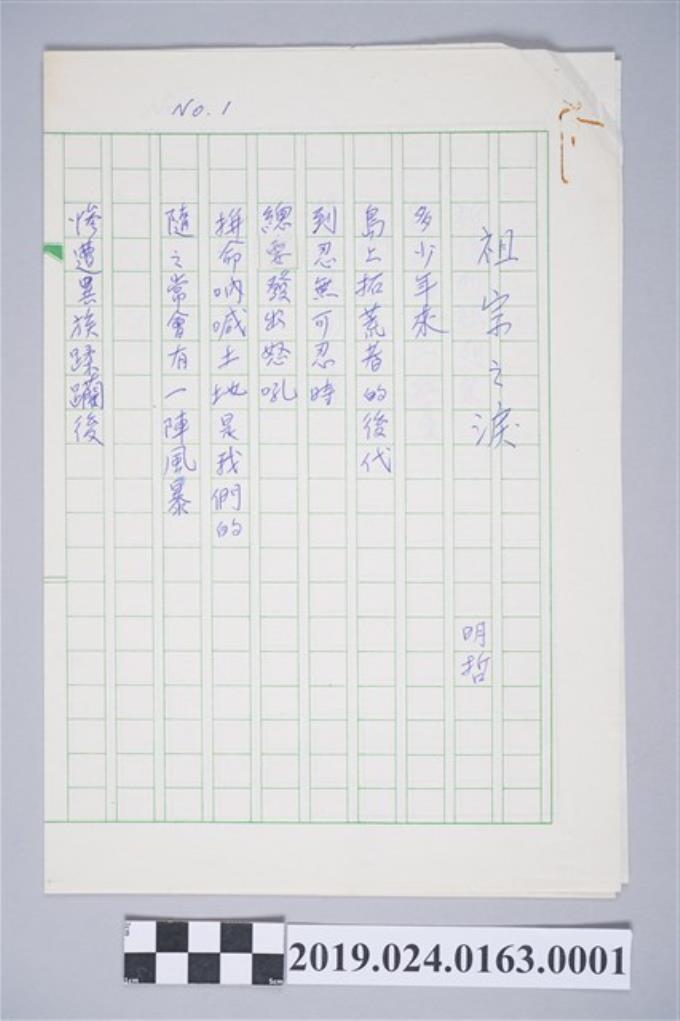 No.1
祖宗之淚
明哲
多少年來
島上拓荒者的後代
到忍無可忍時
總要發出怒吼
拼命吶喊土地是我們的
隨之常會有一陣風暴
慘遭異族蹂躪後
2019.024.0163.0001